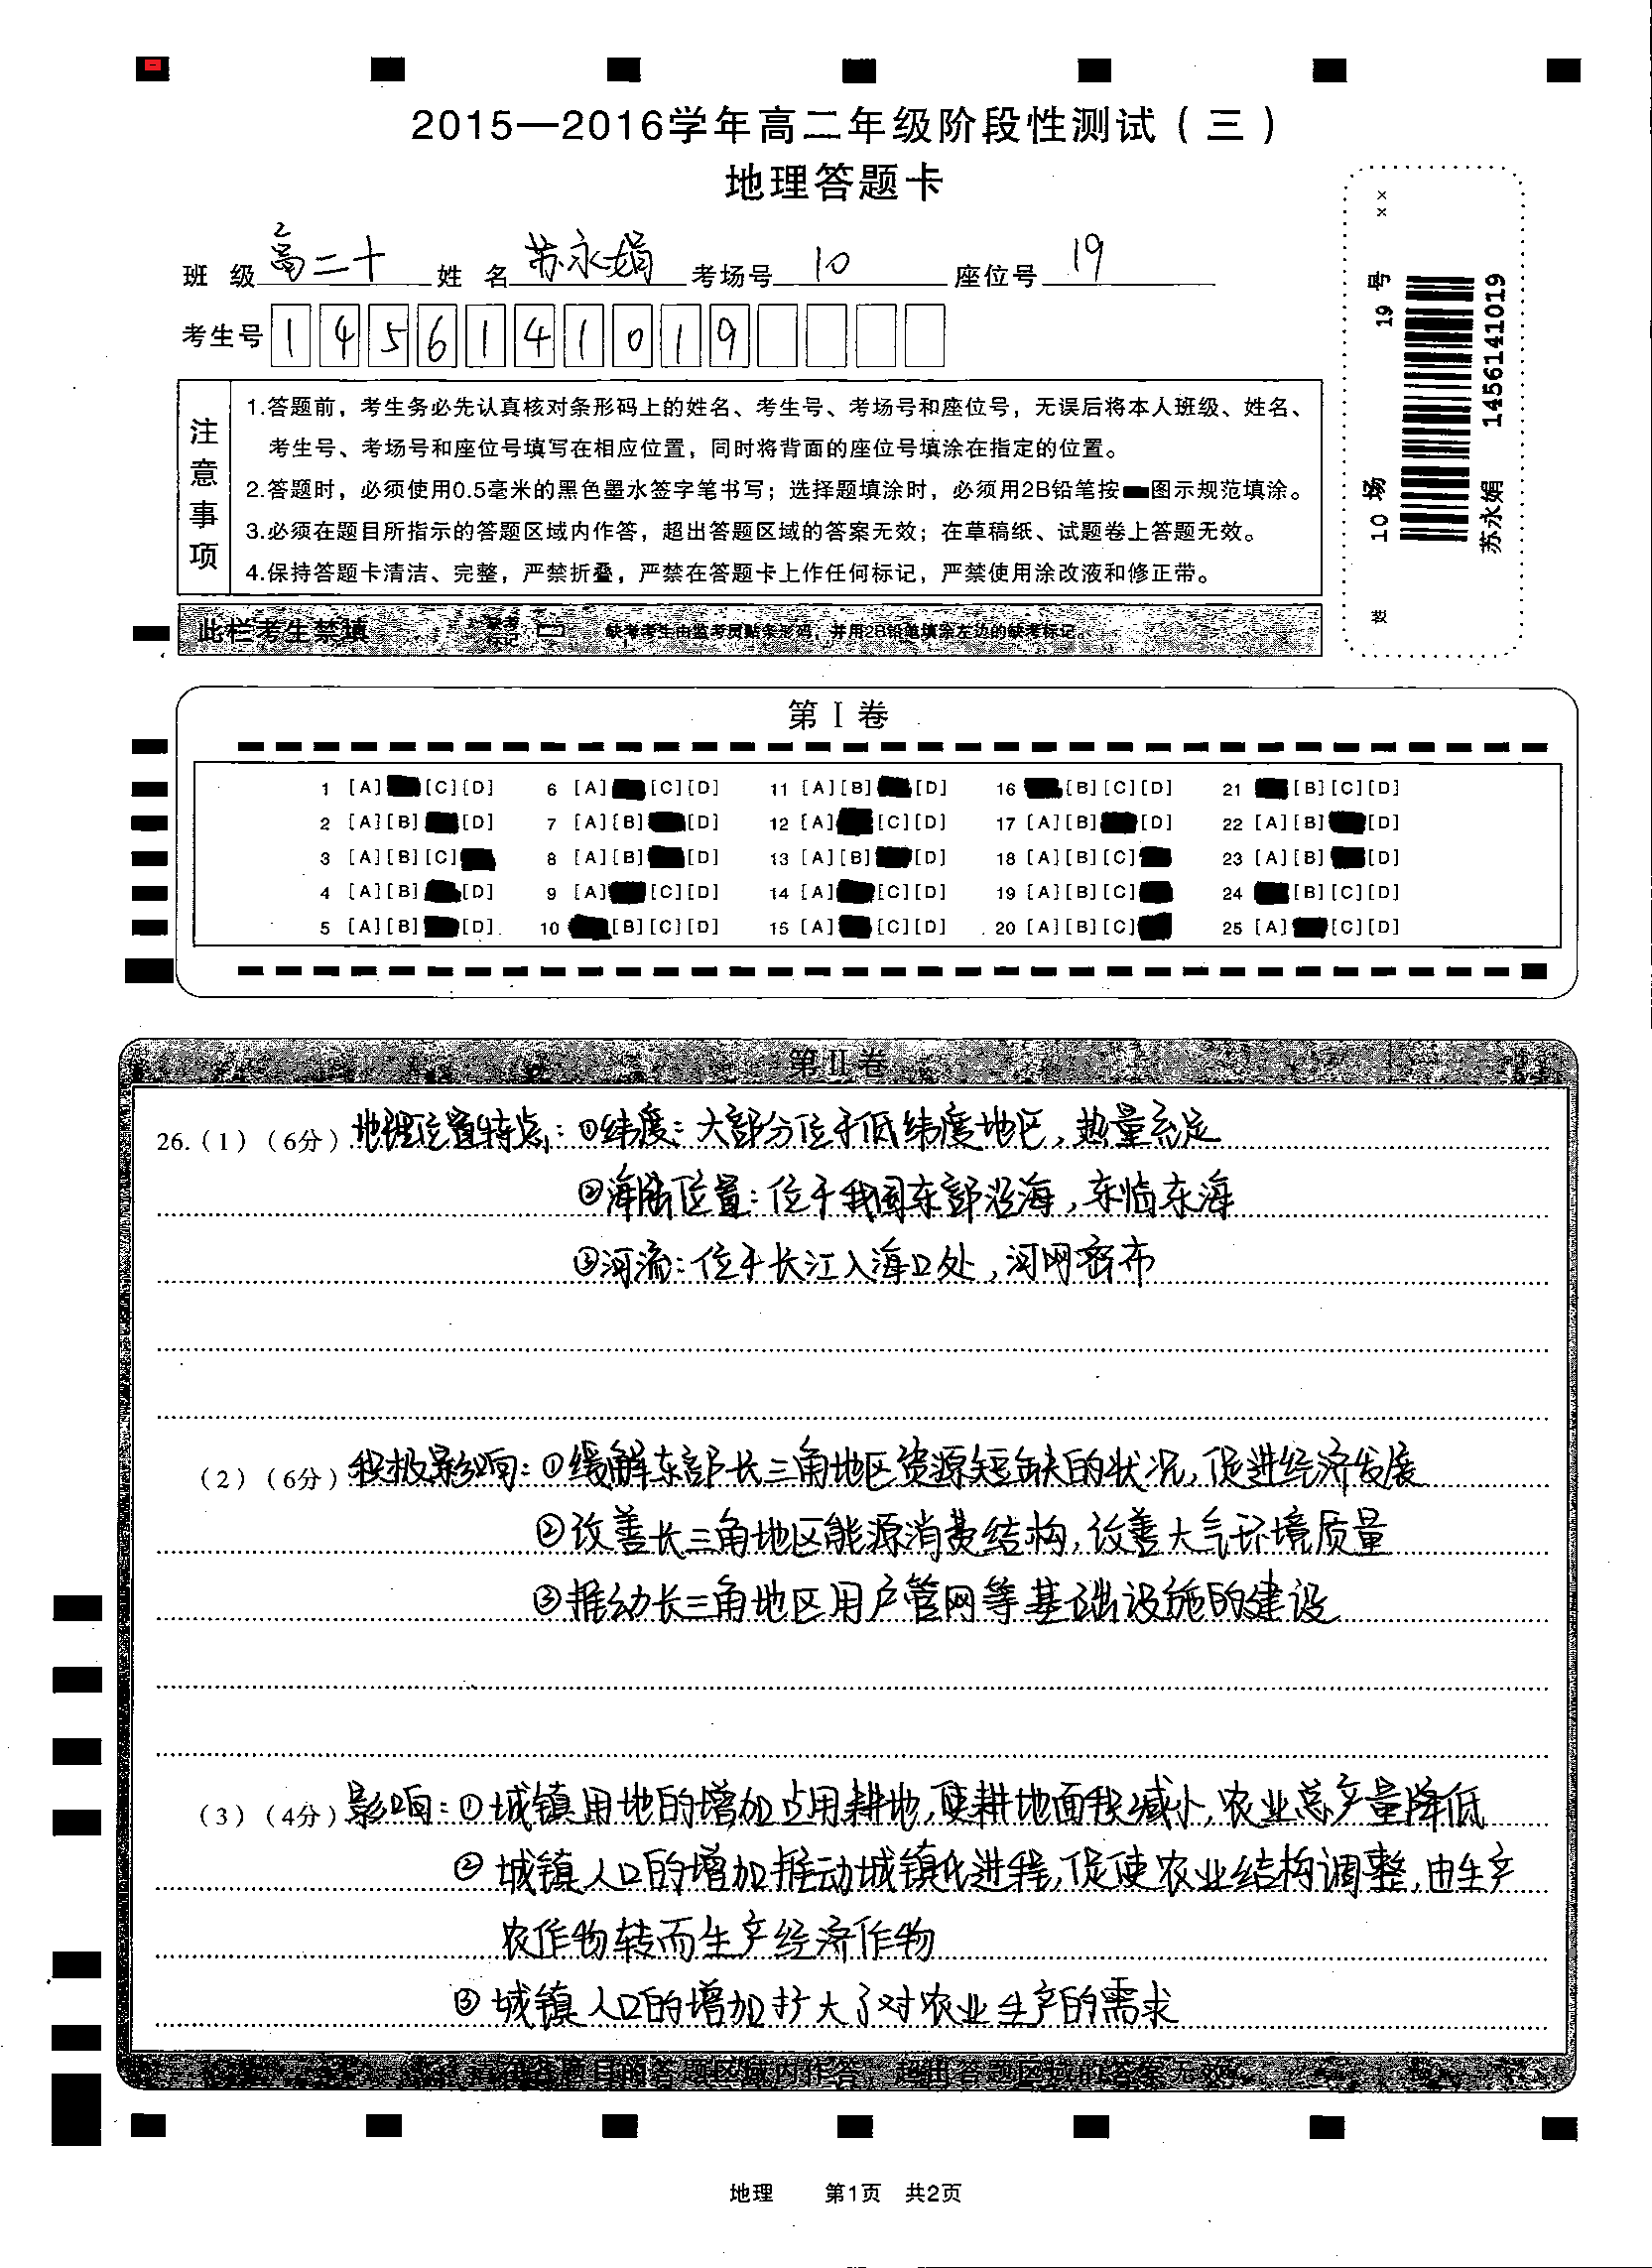 2015—2016学年高二年级阶段性测试（三）
地理答题卡
班 级 高二十 姓 名 苏永娟 考场号 10 座位号 19
考生号 1 4 5 6 1 4 1 0 1 9
注意事项
1.答题前，考生务必先认真核对条形码上的姓名、考生号、考场号和座位号，无误后将本人班级、姓名、
考生号、考场号和座位号填写在相应位置，同时将背面的座位号填涂在指定的位置。
2.答题时，必须使用0.5毫米的黑色墨水签字笔书写；选择题填涂时，必须用2B铅笔按图示规范填涂。
3.必须在题目所指示的答题区域内作答，超出答题区域的答案无效；在草稿纸、试题卷上答题无效。
4.保持答题卡清洁、完整，严禁折叠，严禁在答题卡上作任何标记，严禁使用涂改液和修正带。
10场 19号 ××
苏永娟 1456141019
此栏考生禁填 缺考标记 缺考考生由监考员贴条形码，并用2B铅笔填涂左边的缺考标记。
第 I 卷
1 [A] [C] [D] 6 [A] [C] [D] 11 [A] [B] [D] 16 [B] [C] [D] 21 [B] [C] [D]
2 [A] [B] [D] 7 [A] [B] [D] 12 [A] [C] [D] 17 [A] [B] [D] 22 [A] [B] [D]
3 [A] [B] [C] 8 [A] [B] [D] 13 [A] [B] [D] 18 [A] [B] [C] 23 [A] [B] [D]
4 [A] [B] [D] 9 [A] [C] [D] 14 [A] [C] [D] 19 [A] [B] [C] 24 [B] [C] [D]
5 [A] [B] [D] 10 [B] [C] [D] 15 [A] [C] [D] 20 [A] [B] [C] 25 [A] [C] [D]
第 II 卷
26.（1）（6分）地理位置特点：①纬度：大部分位于低纬度地区，热量充足
②海陆位置：位于我国东部沿海，东临东海
③河流：位于长江入海口处，河网密布
（2）（6分）积极影响：①缓解东部长三角地区资源短缺的状况，促进经济发展
②改善长三角地区能源消费结构，改善大气环境质量
③推动长三角地区用户管网等基础设施的建设
（3）（4分）影响：①城镇用地的增加占用耕地，使耕地面积减小，农业总产量降低
②城镇人口的增加推动城镇化进程，促使农业结构调整，由生产
农作物转而生产经济作物
③城镇人口的增加扩大了对农业生产的需求
请在各题目的答题区域内作答，超出答题区域的答案无效
地理 第1页 共2页